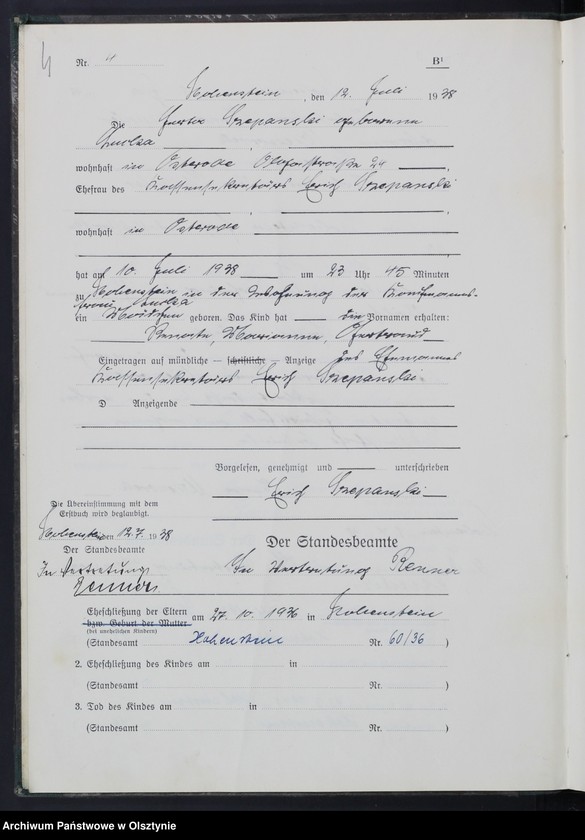 4
Nr. 4
B¹
Hohenstein, den 12. Juli 1938
Die Herta Szepanski geborene
wohnhaft in Osterode 24
Ehefrau des Kassensekretärs Erich Szepanski
wohnhaft in Osterode
hat am 10. Juli 1938 um 23 Uhr 45 Minuten
zu Hohenstein in der Wohnung der Kaufmanns-
frau
ein Mädchen geboren. Das Kind hat die Vornamen erhalten:
Renate, Marianne, Gertraud
Eingetragen auf mündliche — schriftliche — Anzeige des Ehemannes
Kassensekretärs Erich Szepanski.
D Anzeigende
Vorgelesen, genehmigt und unterschrieben
Erich Szepanski
Die Übereinstimmung mit dem
Erstbuch wird beglaubigt.
Hohenstein, den 12.7. 1938
Der Standesbeamte
In Vertretung
Renner
Der Standesbeamte
In Vertretung Renner
Eheschließung der Eltern
bzw. Geburt der Mutter
am 27. 10. 1936 in Hohenstein
(bei unehelichen Kindern)
(Standesamt Hohenstein Nr. 60/36 )
2. Eheschließung des Kindes am in
(Standesamt Nr. )
3. Tod des Kindes am in
(Standesamt Nr. )
Archiwum Państwowe w Olsztynie